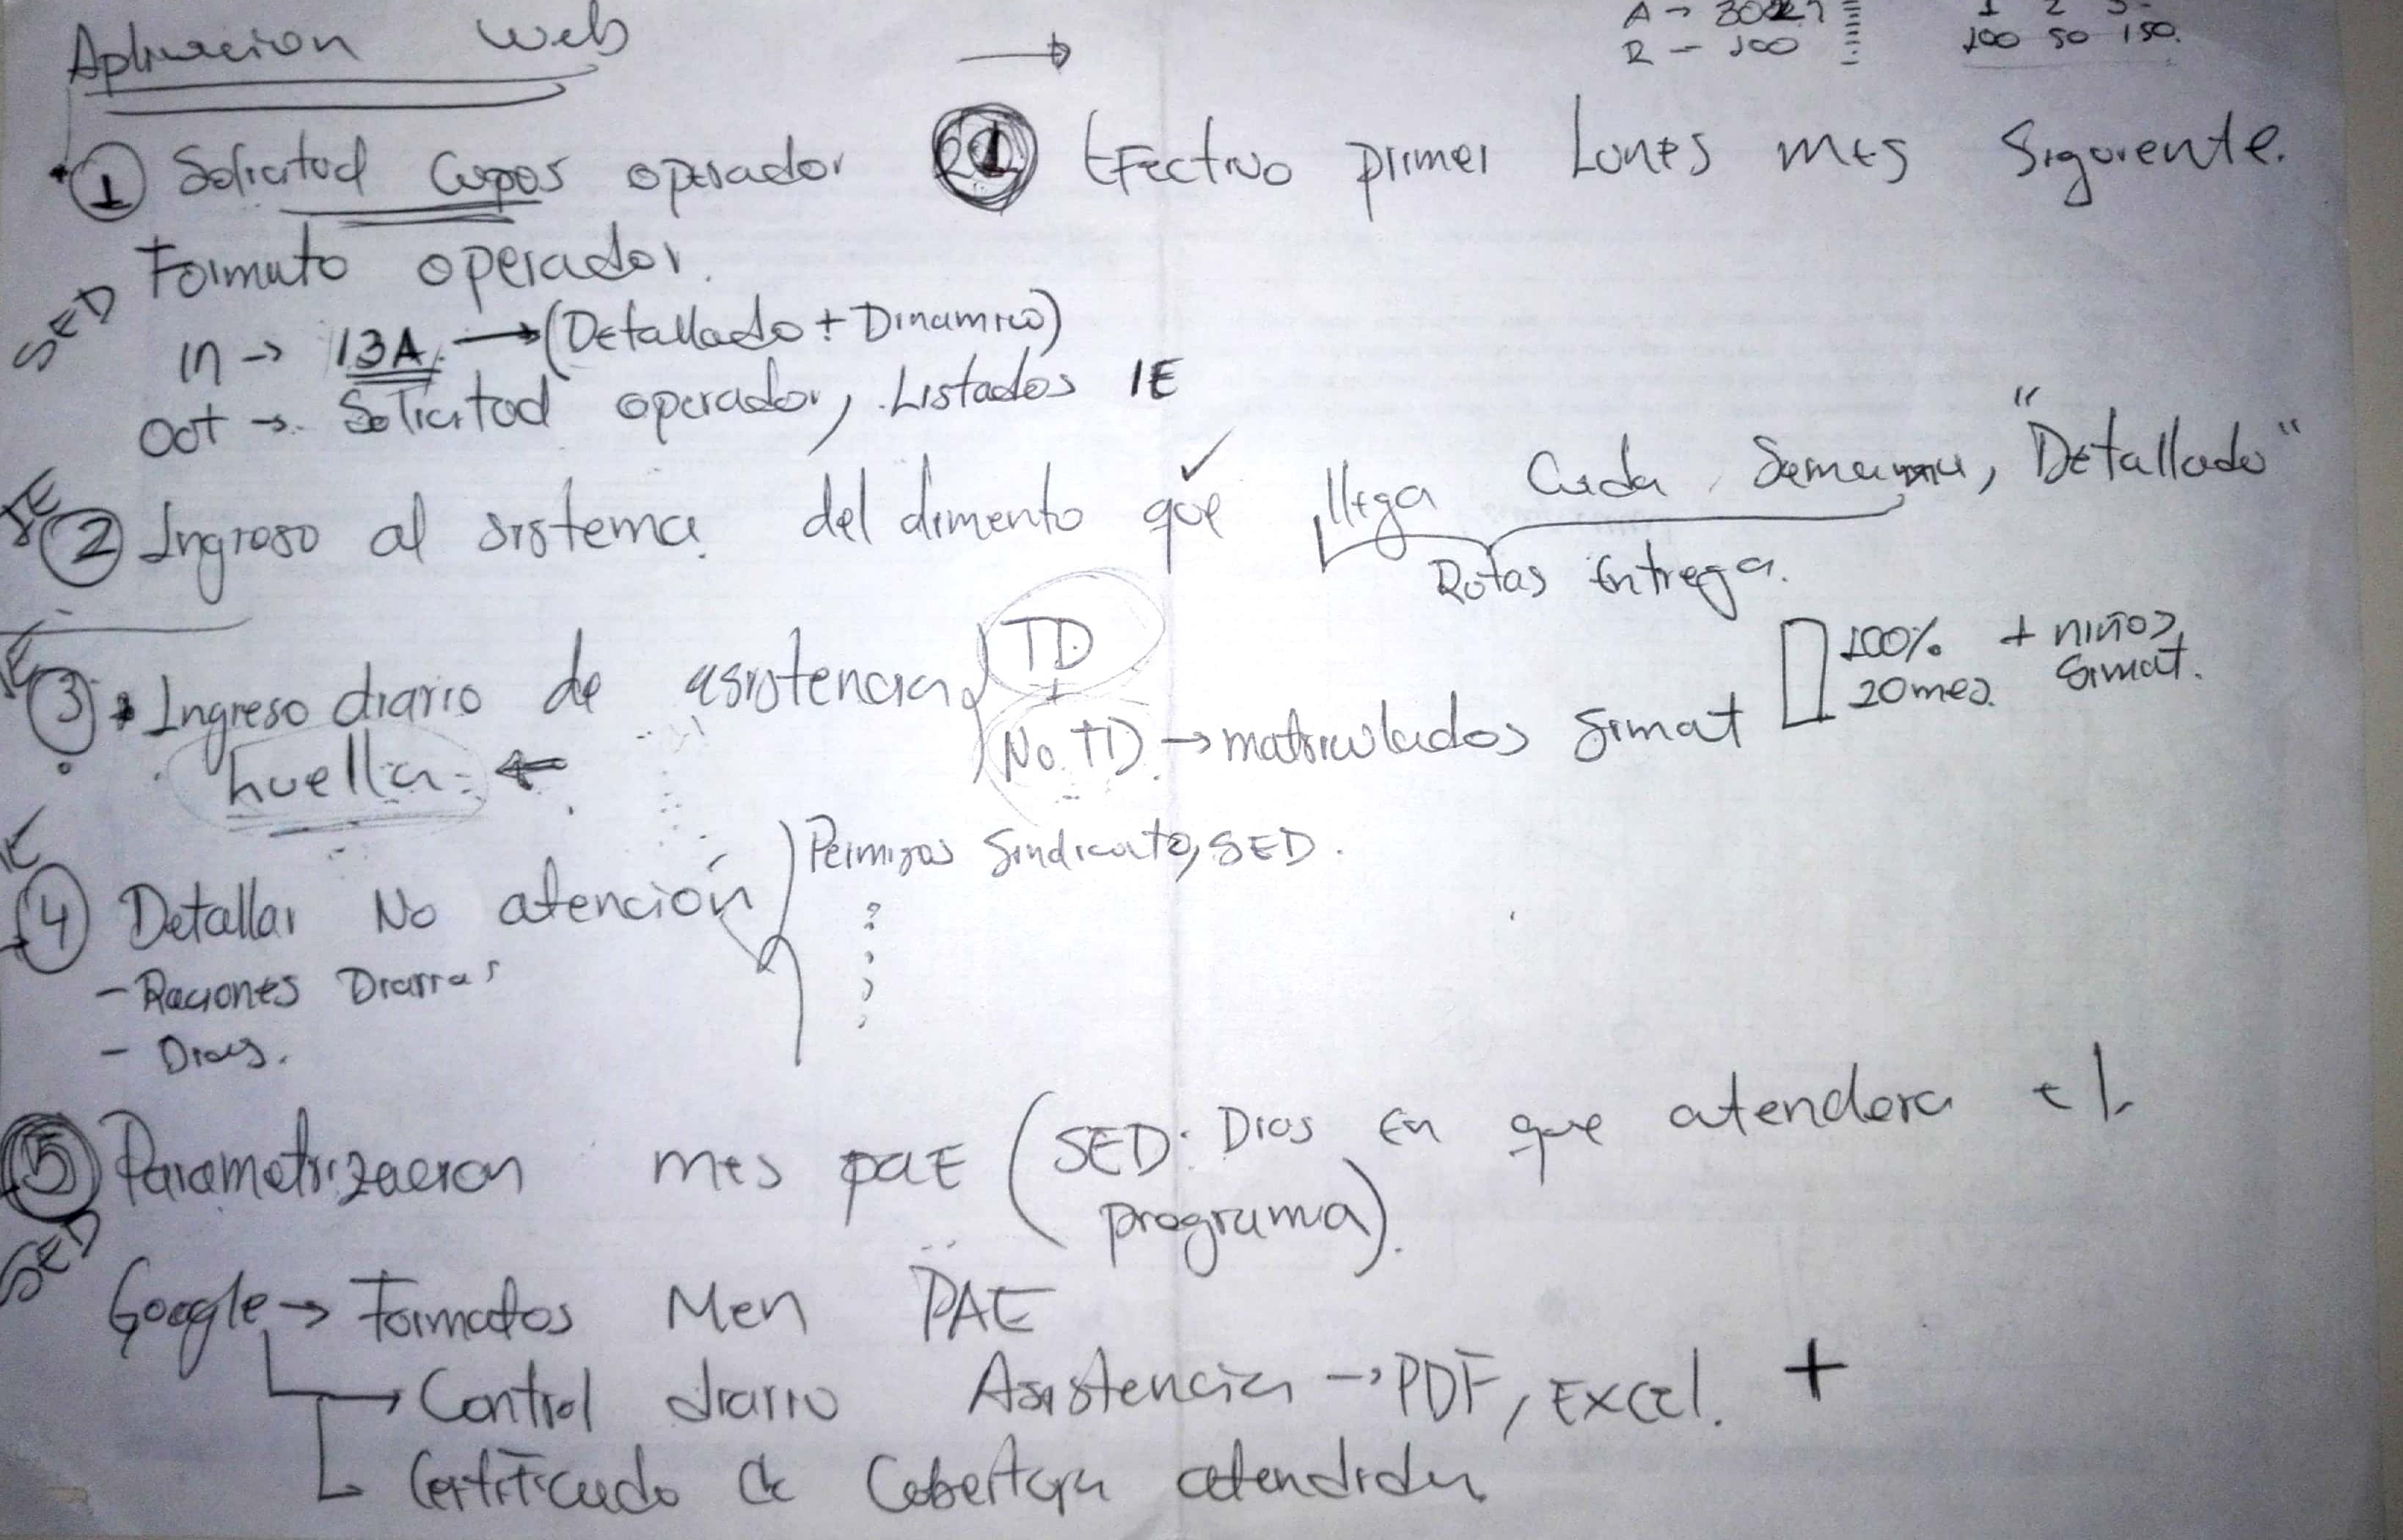 Aplicacion Web
R - 100
100 50 150.
1 Solicitud Cupos operador
Efectivo primer Lunes mes Siguiente.
Formato operador.
SED
In → 13A. → (Detallado + Dinamico)
Out → Solicitud operador, Listados IE
IE
2 Ingreso al sistema del alimento que llega Cada Semana, "Detallado"
Rutas Entrega.
IE
3 Ingreso diario de asistencia
TD
+
No. TD → matriculados Simat
100% + niños
20 mes. Simat.
huella. ←
IE
4 Detallar No atención
Permisos Sindicato, SED.
- Raciones Diarias
- Dias.
5 Parametrizacion mes paE (SED: Dias En que atendera el
programa).
SED
Google → Formatos Men PAE
→ Control diario Asistencia → PDF, Excel. +
Certificado de Cobertura atendida